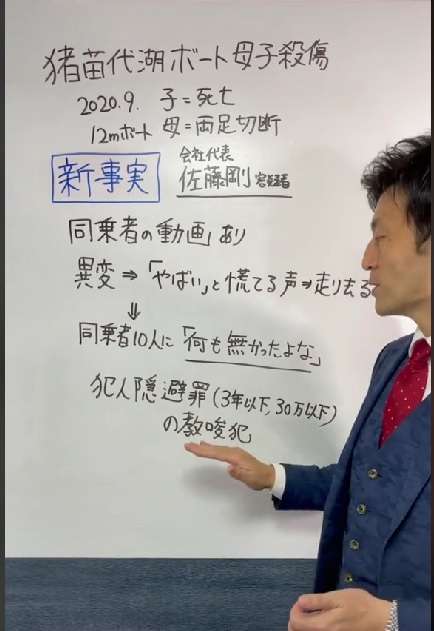 猪苗代湖ボート母子殺傷
2020.9. 子=死亡
12mボート 母=両足切断
新事実
会社代表
佐藤剛容疑者
同乗者の動画あり
異変⇒「やばい」と慌てる声⇒走り去る
⇓
同乗者10人に「何も無かったよな」
犯人隠避罪(3年以下,30万以下)
の教唆犯